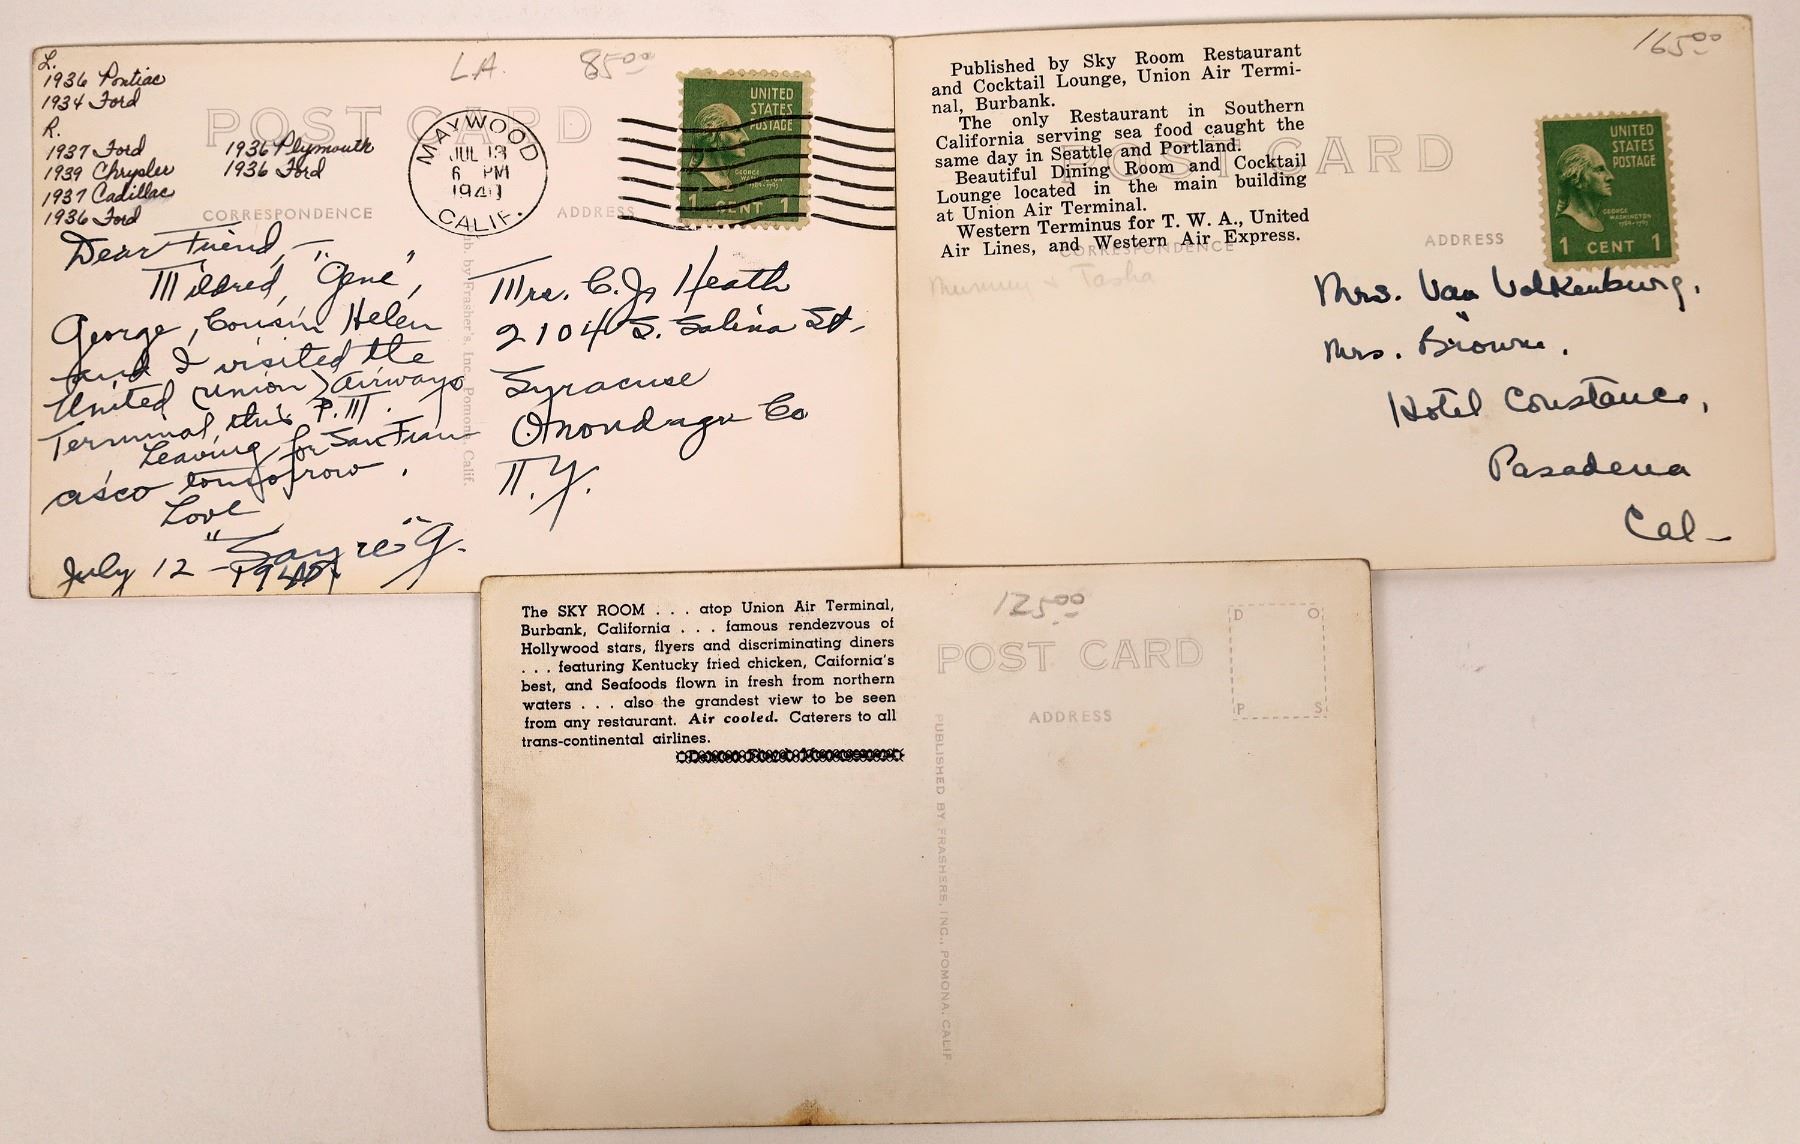 L.
1936 Pontiac
1934 Ford
R.
1937 Ford
1939 Chrysler
1937 Cadillac
1936 Ford
1936 Plymouth
1936 Ford
LA.
85.00
POST CARD
CORRESPONDENCE
ADDRESS
MAYWOOD
JUL 13
6 PM
CALIF.
UNITED
STATES
POSTAGE
GEORGE
WASHINGTON
1 CENT 1
Dear Friend,
Mildred, "Gene",
George, Cousin Helen
and I visited the
United (union) Airways
Terminal, this P.M.
Leaving for San Fran
cisco tomorrow.
Love
"Sayre" G.
July 12 -
Pub. by Frasher's, Inc., Pomona, Calif.
Mrs. C. J. Heath
2104 S. Salina St.
Syracuse
Onondaga Co
N.Y.
165.00
Published by Sky Room Restaurant
and Cocktail Lounge, Union Air Termi-
nal, Burbank.
The only Restaurant in Southern
California serving sea food caught the
same day in Seattle and Portland.
Beautiful Dining Room and Cocktail
Lounge located in the main building
at Union Air Terminal.
Western Terminus for T. W. A., United
Air Lines, and Western Air Express.
POST CARD
CORRESPONDENCE
ADDRESS
& Tasha
UNITED
STATES
POSTAGE
GEORGE
WASHINGTON
1789-1797
1 CENT 1
Mrs. Van Volkenburg,
"
Mrs. Brown,
Hotel Constance,
Pasadena
Cal-
The SKY ROOM . . . atop Union Air Terminal,
Burbank, California . . . famous rendezvous of
Hollywood stars, flyers and discriminating diners
. . . featuring Kentucky fried chicken, Caifornia's
best, and Seafoods flown in fresh from northern
waters . . . also the grandest view to be seen
from any restaurant. Air cooled. Caterers to all
trans-continental airlines.
125.00
POST CARD
ADDRESS
D O
P S
PUBLISHED BY FRASHERS, INC., POMONA, CALIF